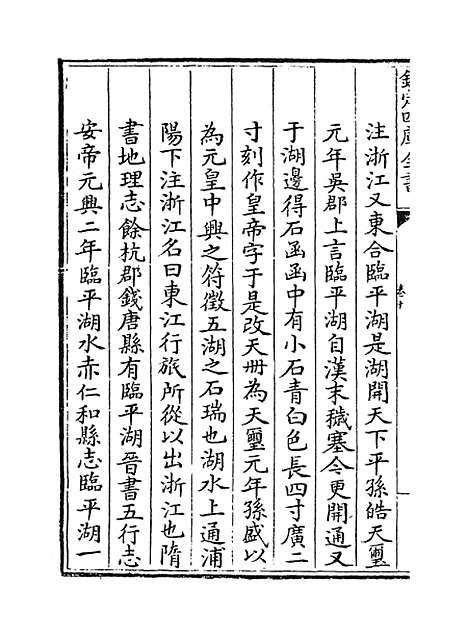 欽定四庫全書
卷十
注浙江又東合臨平湖是湖開天下平孫皓天璽
元年吳郡上言臨平湖自漢末穢塞今更開通又
于湖邊得石函函中有小石青白色長四寸廣二
寸刻作皇帝字于是改天冊為天璽元年孫盛以
為元皇中興之符徵五湖之石瑞也湖水上通浦
陽下注浙江名曰東江行旅所從以出浙江也隋
書地理志餘杭郡錢唐縣有臨平湖晉書五行志
安帝元興二年臨平湖水赤仁和縣志臨平湖一